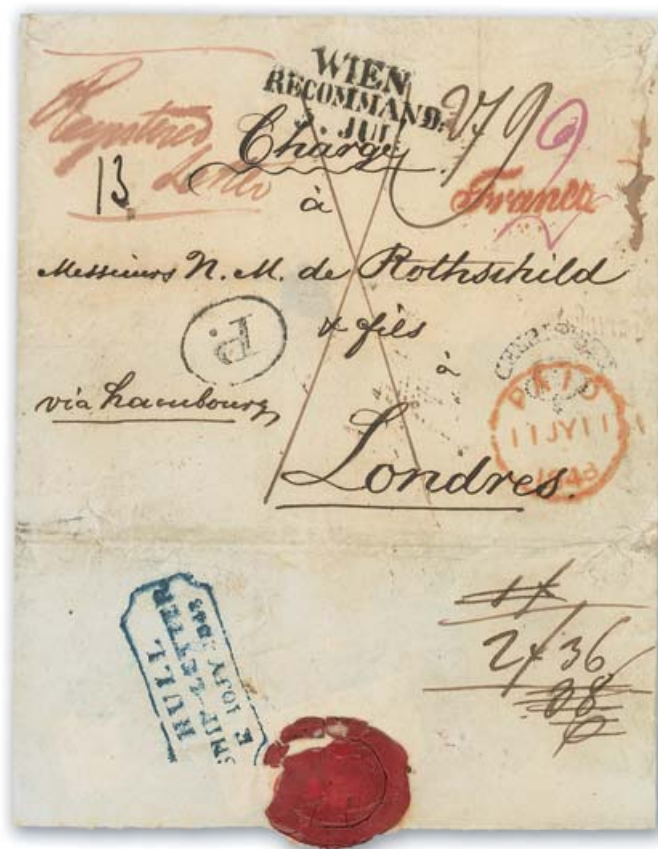 WIEN
RECOMMAND:
JUL
Registered
Letter
13
Chargé
Franco
à
Messieurs N. M. de Rothschild
& fils
P.
à
via hambourg
PAID
11 JY 11
Londres.
HULL
SHIP-LETTER
E 10JY
2/36